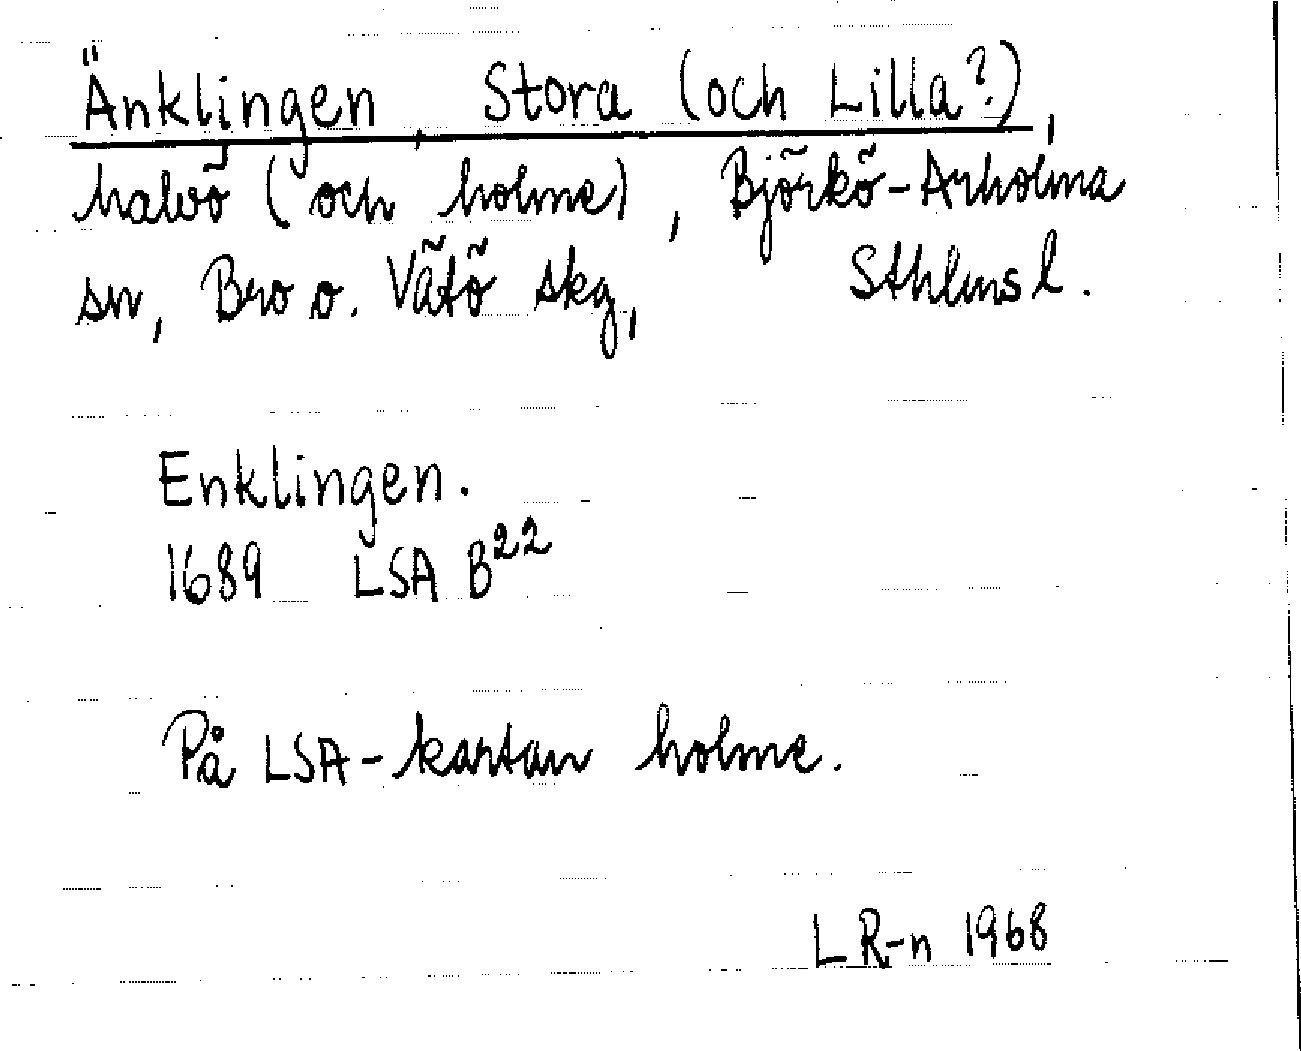 Änklingen, Stora (och Lilla?),
halvö (och holme), Björkö-Arholma
sn, Bro o. Vätö skg, Sthlms l.
Enklingen.
1689 LSA B²²
På LSA-kartan holme.
LR-n 1968